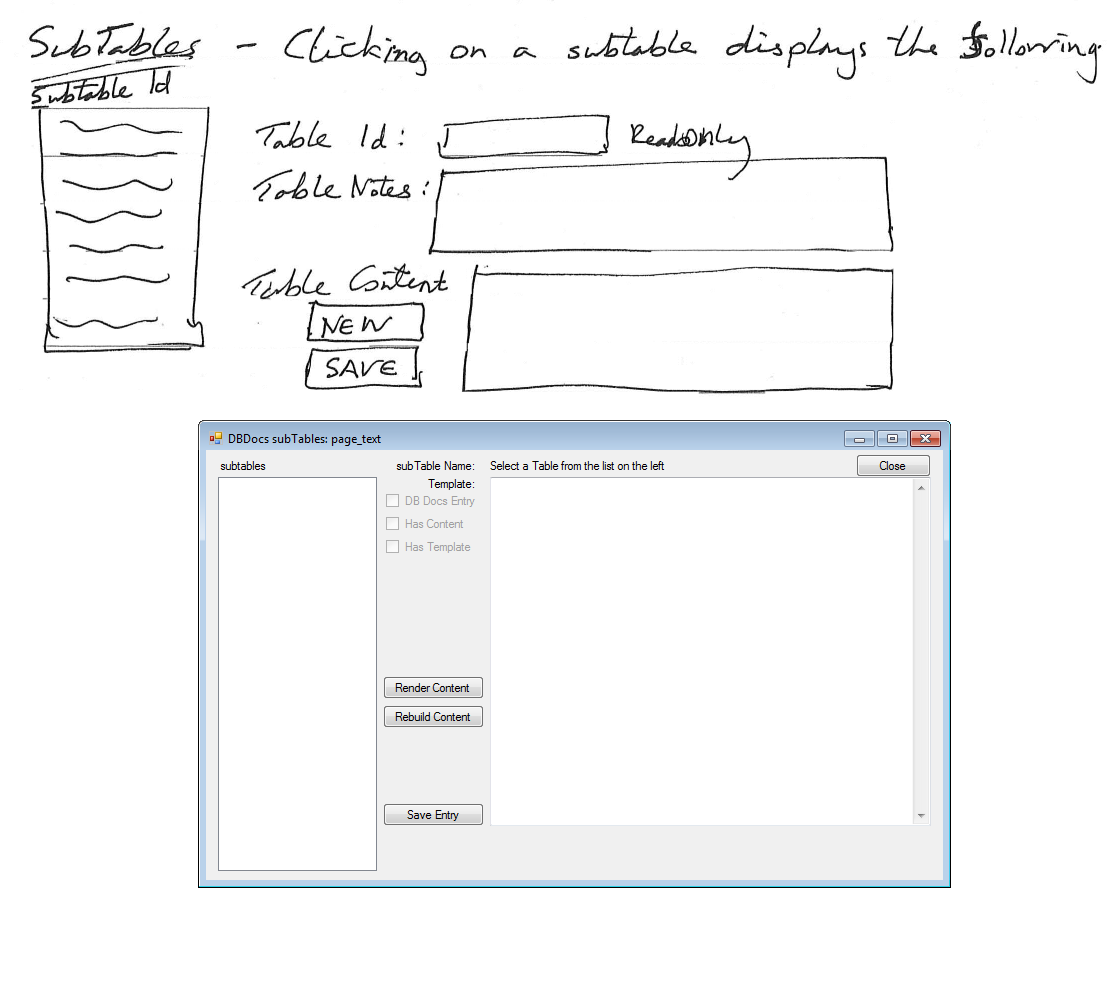 SubTables - Clicking on a subtable displays the following
Subtable Id
Table Id: ReadOnly
Table Notes:
Table Content
NEW
SAVE
DBDocs subTables: page_text
subtables subTable Name: Select a Table from the list on the left Close
Template:
DB Docs Entry
Has Content
Has Template
Render Content
Rebuild Content
Save Entry